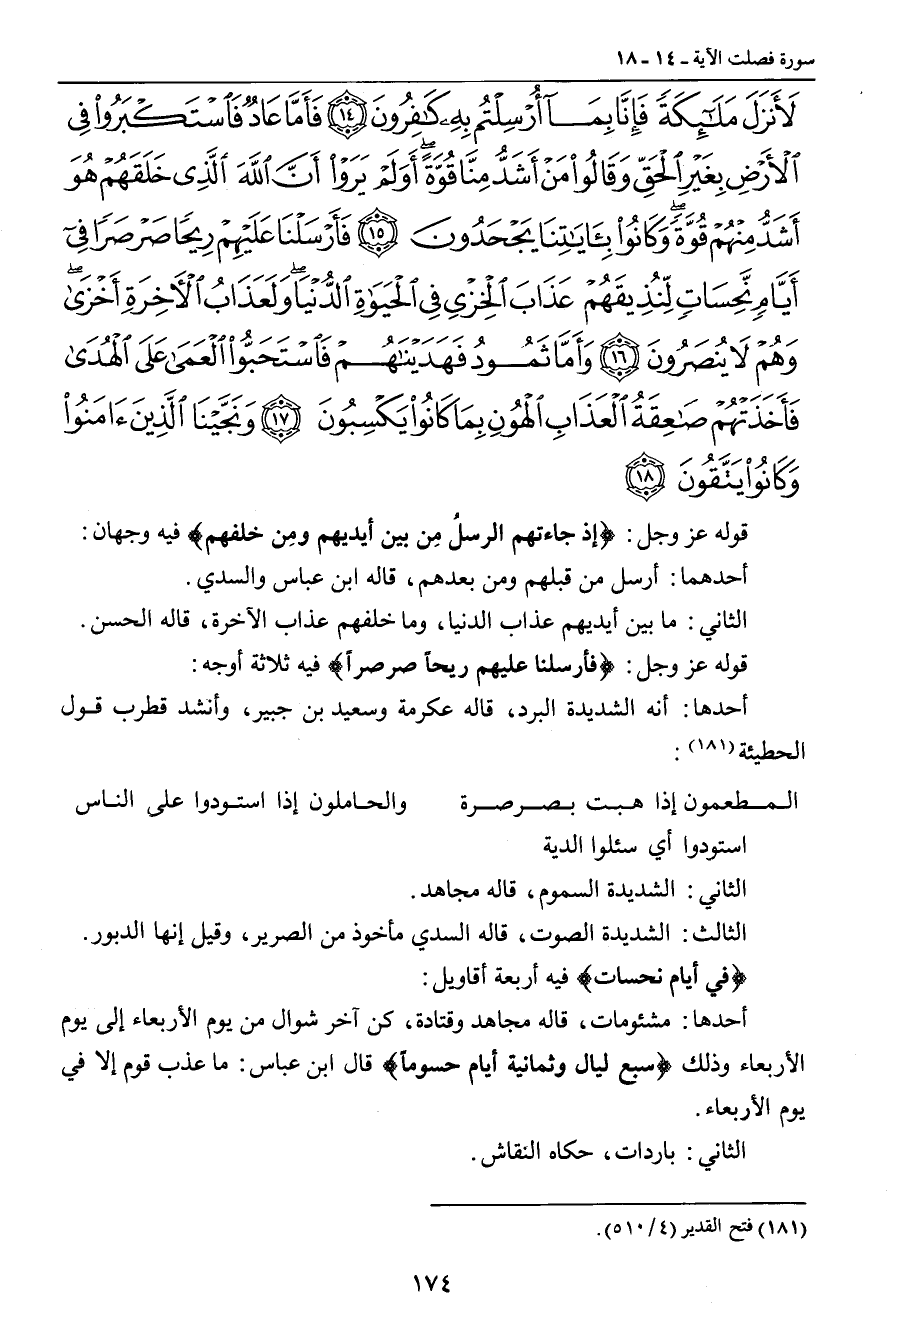 سورة فصلت الآية ـ ١٤ ـ ١٨
لَأَنزَلَ مَلَٰٓئِكَةً فَإِنَّا بِمَآ أُرْسِلْتُم بِهِۦ كَٰفِرُونَ ﴿١٤﴾ فَأَمَّا عَادٌ فَٱسْتَكْبَرُوا۟ فِى
ٱلْأَرْضِ بِغَيْرِ ٱلْحَقِّ وَقَالُوا۟ مَنْ أَشَدُّ مِنَّا قُوَّةً ۖ أَوَلَمْ يَرَوْا۟ أَنَّ ٱللَّهَ ٱلَّذِى خَلَقَهُمْ هُوَ
أَشَدُّ مِنْهُمْ قُوَّةً ۖ وَكَانُوا۟ بِـَٔايَٰتِنَا يَجْحَدُونَ ﴿١٥﴾ فَأَرْسَلْنَا عَلَيْهِمْ رِيحًا صَرْصَرًا فِىٓ
أَيَّامٍ نَّحِسَاتٍ لِّنُذِيقَهُمْ عَذَابَ ٱلْخِزْىِ فِى ٱلْحَيَوٰةِ ٱلدُّنْيَا ۖ وَلَعَذَابُ ٱلْأَخِرَةِ أَخْزَىٰ ۖ
وَهُمْ لَا يُنصَرُونَ ﴿١٦﴾ وَأَمَّا ثَمُودُ فَهَدَيْنَٰهُمْ فَٱسْتَحَبُّوا۟ ٱلْعَمَىٰ عَلَى ٱلْهُدَىٰ
فَأَخَذَتْهُمْ صَٰعِقَةُ ٱلْعَذَابِ ٱلْهُونِ بِمَا كَانُوا۟ يَكْسِبُونَ ﴿١٧﴾ وَنَجَّيْنَا ٱلَّذِينَ ءَامَنُوا۟
وَكَانُوا۟ يَتَّقُونَ ﴿١٨﴾
قوله عز وجل: ﴿إذ جاءتهم الرسلُ مِن بين أيديهم ومِن خلفهم﴾ فيه وجهان:
أحدهما: أرسل من قبلهم ومن بعدهم، قاله ابن عباس والسدي.
الثاني: ما بين أيديهم عذاب الدنيا، وما خلفهم عذاب الآخرة، قاله الحسن.
قوله عز وجل: ﴿فأرسلنا عليهم ريحاً صرصراً﴾ فيه ثلاثة أوجه:
أحدها: أنه الشديدة البرد، قاله عكرمة وسعيد بن جبير، وأنشد قطرب قول
الحطيئة(١٨١):
المطعمون إذا هبت بصرصرة والحاملون إذا استودوا على الناس
استودوا أي سئلوا الدية
الثاني: الشديدة السموم، قاله مجاهد.
الثالث: الشديدة الصوت، قاله السدي مأخوذ من الصرير، وقيل إنها الدبور.
﴿في أيام نحسات﴾ فيه أربعة أقاويل:
أحدها: مشئومات، قاله مجاهد وقتادة، كن آخر شوال من يوم الأربعاء إلى يوم
الأربعاء وذلك ﴿سبع ليال وثمانية أيام حسوماً﴾ قال ابن عباس: ما عذب قوم إلا في
يوم الأربعاء.
الثاني: باردات، حكاه النقاش.
(١٨١) فتح القدير (٥١٠/٤).
١٧٤